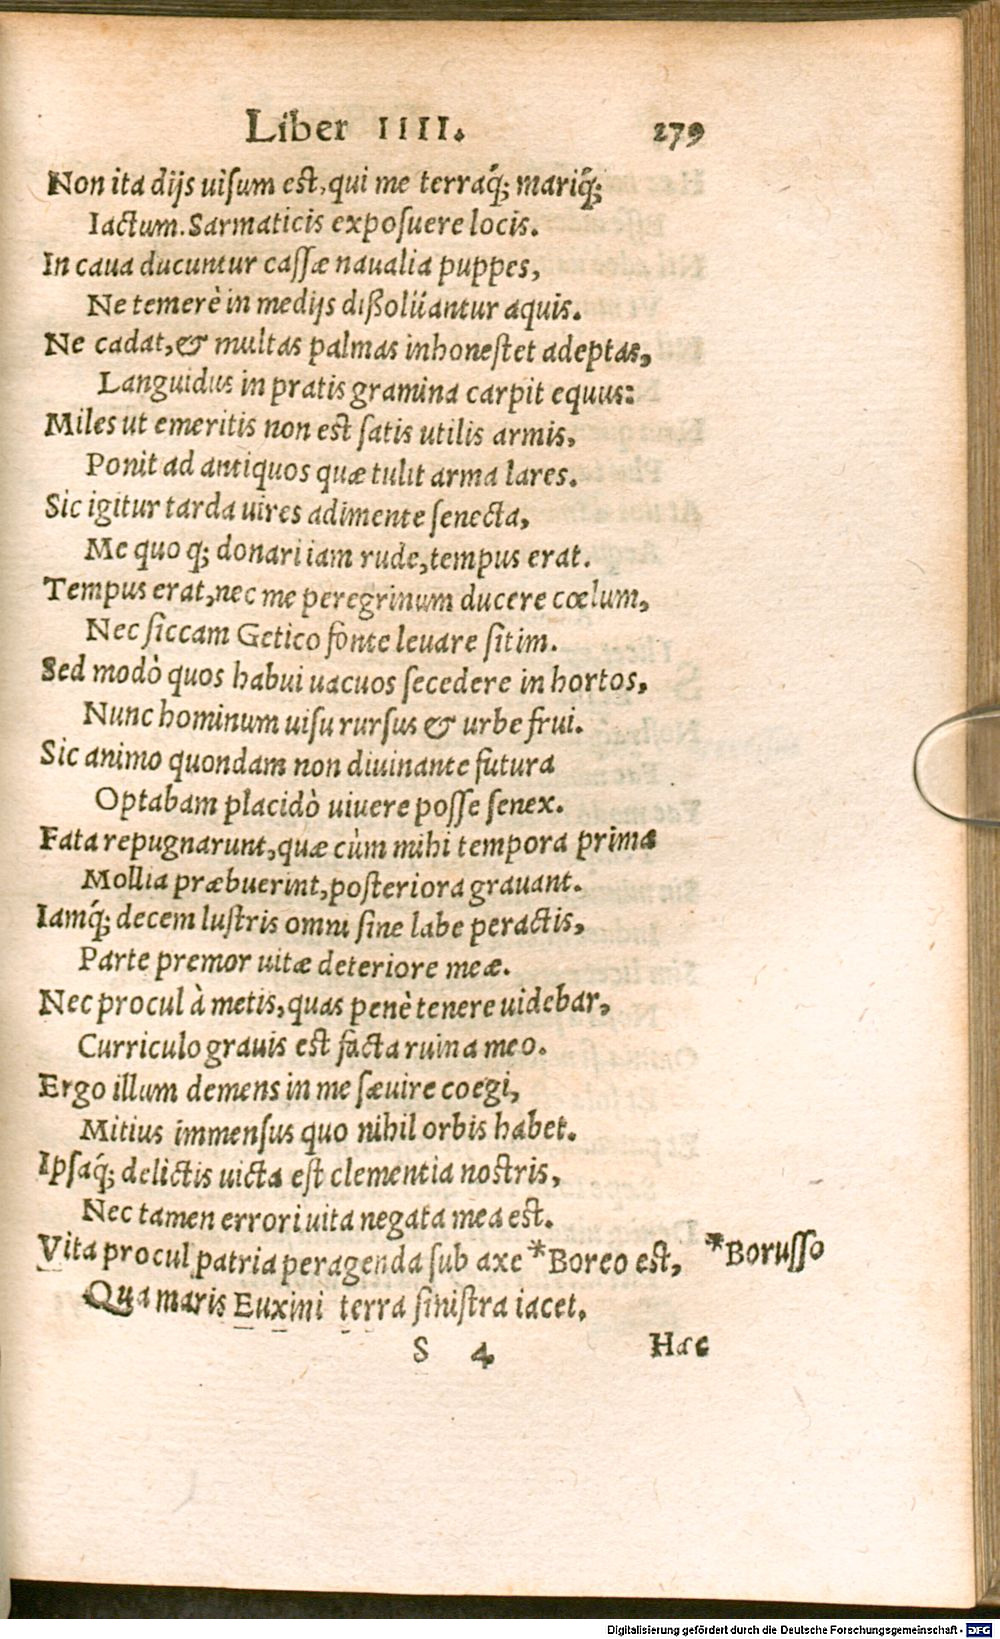 Liber IIII. 279
Non ita dijs uiſum eſt, qui me terraq́; mariq́;
Iactum. Sarmaticis expoſuere locis.
In caua ducuntur caſſæ naualia puppes,
Ne temerè in medijs dißoluantur aquis.
Ne cadat, & multas palmas inhoneſtet adeptas,
Languidus in pratis gramina carpit equus:
Miles ut emeritis non eſt ſatis utilis armis,
Ponit ad antiquos quæ tulit arma lares.
Sic igitur tarda uires adimente ſenecta,
Me quoq; donari iam rude, tempus erat.
Tempus erat, nec me peregrinum ducere cœlum,
Nec ſiccam Getico fonte leuare ſitim.
Sed modò quos habui uacuos ſecedere in hortos,
Nunc hominum uiſu rurſus & urbe frui.
Sic animo quondam non diuinante futura
Optabam placidò uiuere poſſe ſenex.
Fata repugnarunt, quæ cùm mihi tempora prima
Mollia præbuerint, poſteriora grauant.
Iamq́; decem luſtris omni ſine labe peractis,
Parte premor uitæ deteriore meæ.
Nec procul à metis, quas penè tenere uidebar,
Curriculo grauis eſt facta ruina meo.
Ergo illum demens in me ſæuire coegi,
Mitius immenſus quo nihil orbis habet.
Ipſaq́; delictis uicta eſt clementia noſtris,
Nec tamen errori uita negata mea eſt.
Vita procul patria peragenda ſub axe *Boreo eſt, *Boruſſo
Qua maris Euxini terra ſiniſtra iacet.
S 4 Hæc
Digitalisierung gefördert durch die Deutsche Forschungsgemeinschaft - DFG